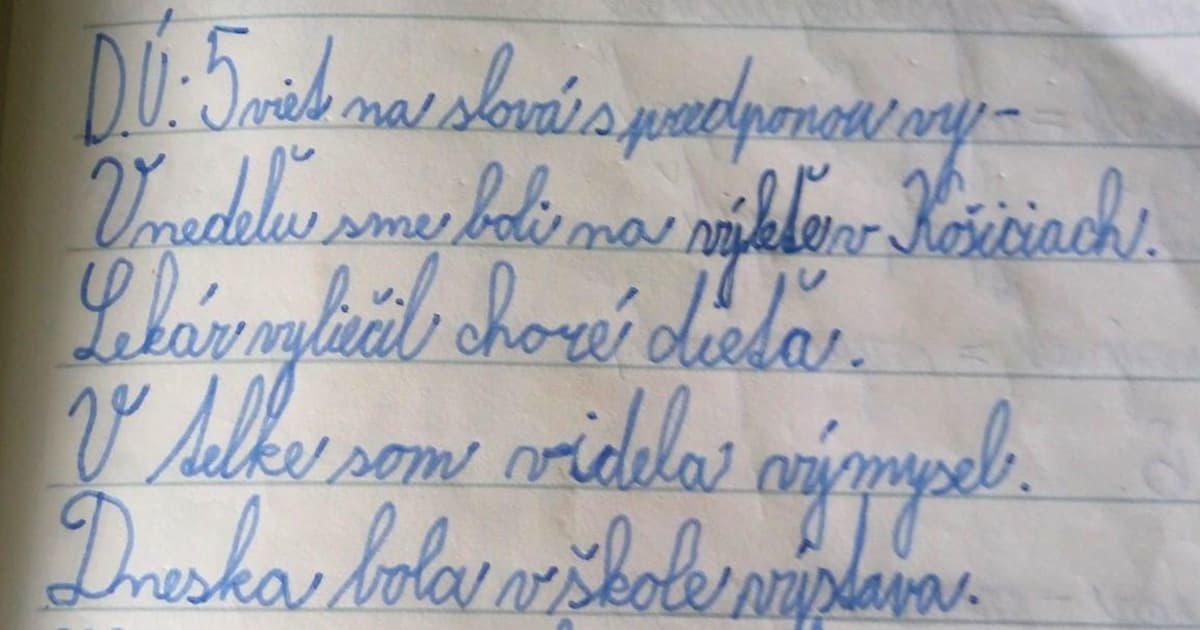 D.Ú.: 5 viet na slová s predponou vy-
V nedeľu sme boli na výlete v Košiciach.
Lekár vyliečil choré dieťa.
V telke som videla výmysel.
Dneska bola v škole výstava.